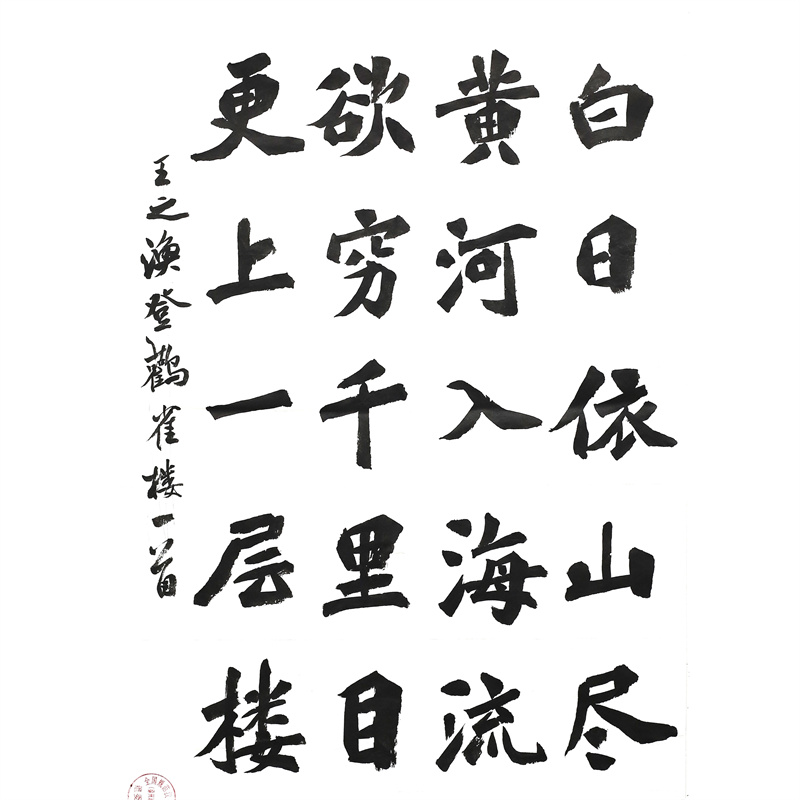 白日依山尽
黄河入海流
欲穷千里目
更上一层楼
王之涣登鹳雀楼一首